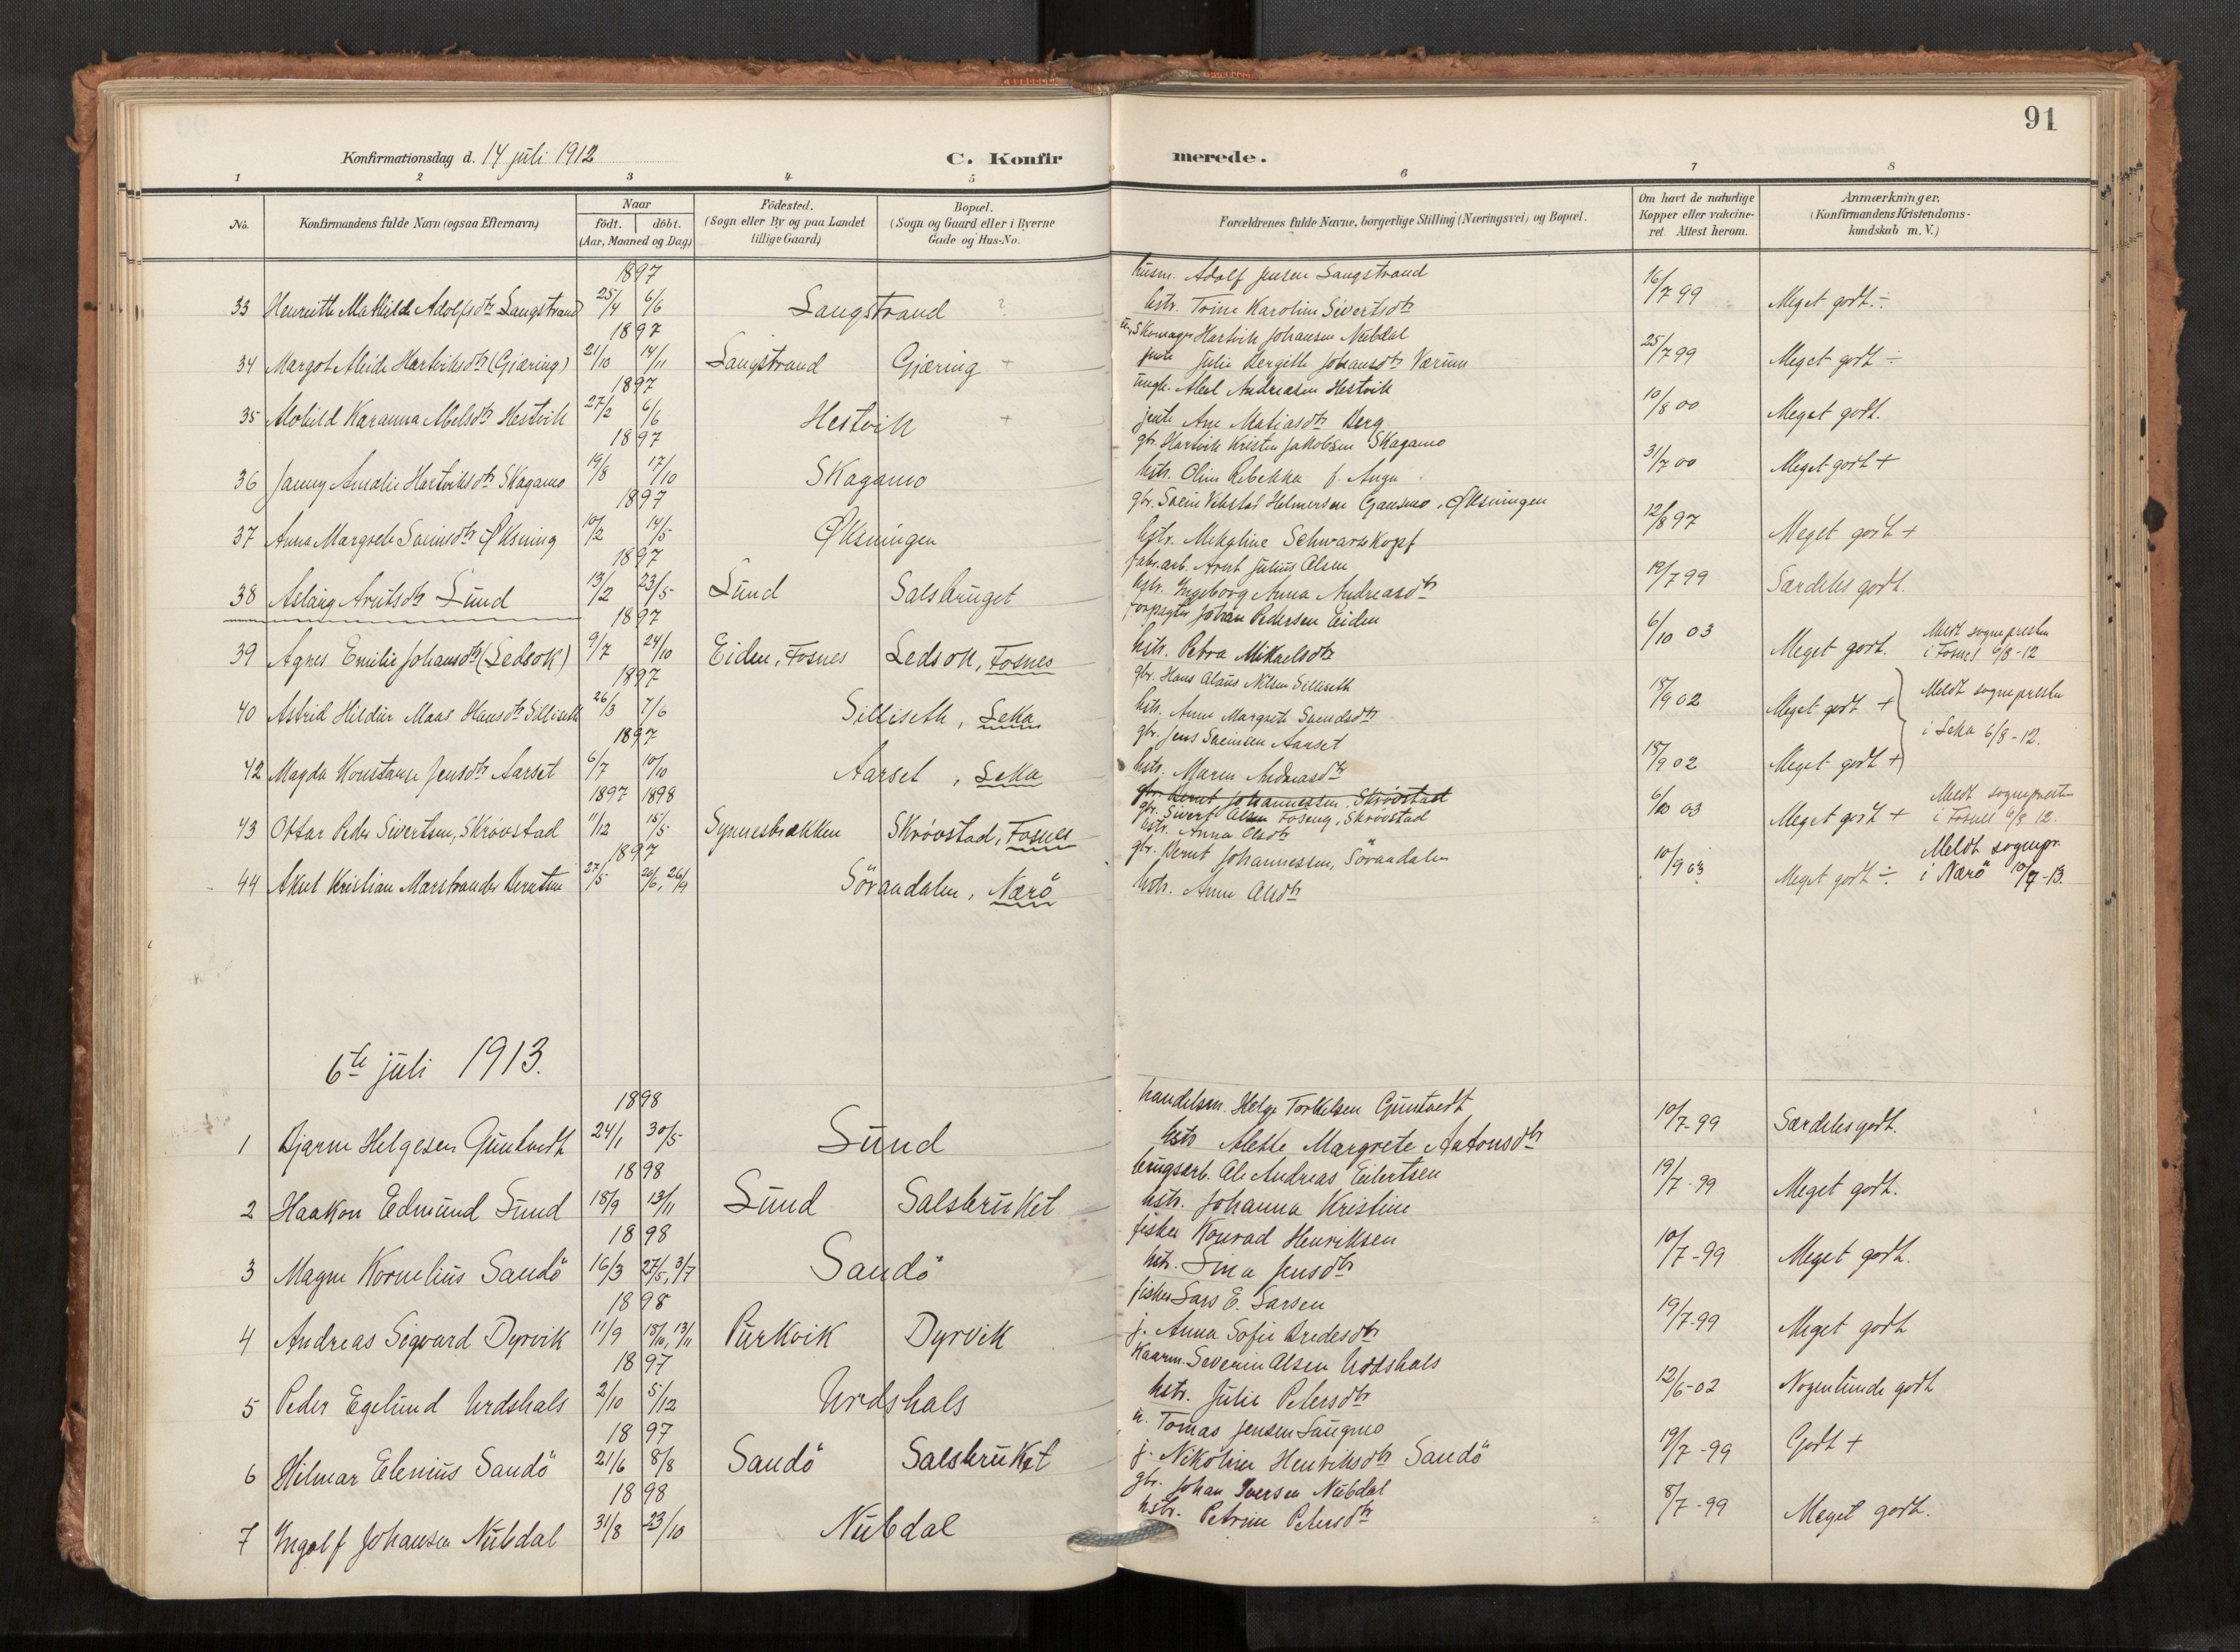 91
Konfirmationsdag d. 14 juli 1912 C. Konfirmerede.
1 2 3 4 5 6 7 8
No. Konfirmandens fulde Navn (ogsaa Efternavn) Naar født. døbt. (Aar, Maaned og Dag) Fødested. (Sogn eller By og paa Landet tillige Gaard) Bopæl. (Sogn og Gaard eller i Byerne Gade og Hus-No. Forældrenes fulde Navne, borgerlige Stilling (Næringsvei) og Bopæl. Om havt de naturlige Kopper eller vakcineret. Attest herom. Anmærkninger. (Konfirmandens Kristendomskundskab m. V.)
1897 husm. Adolf Jensen Langstrand
33 Henriette Mathilde Adolfsdtr Langstrand 25/4 6/6 Langstrand hstr. Trine Karoline Sivertsdtr 16/7 99 Meget godt ÷
1897 Skomager Hartvik Johansen Nubdal
34 Margot Aleide Hartviksdtr (Gjæring) 21/10 14/11 Langstrand Gjæring pike Julie Bergitte Johansdtr Værum 25/7 99 Meget godt ÷
1897 ungk. Abel Andreasen Hestvik
35 Alvhild Karanna Abelsdtr Hestvik 27/2 6/6 Hestvik + jente Ane Matiasdtr Berg 10/8 00 Meget godt.
1897 gbr. Hartvik Kristen Jakobsen Skagamo
36 Janny Amalie Hartviksdtr Skagamo 19/8 17/10 Skagamo hstr. Oline Rebekka f. Aunga 31/7 00 Meget godt +
1897 gbr. Svein Helmersen Gansmo, Øksningen
37 Anna Margrete Sveinsdtr Øksning 10/2 14/5 Øksningen hstr. Mikaline Schwartskopf 12/8 97 Meget godt +
1897 fabr.arb. Arnt Julius Olsen
38 Aslaug Arntsdtr Lund 13/2 23/5 Lund Salsbruget hstr. Ingeborg Anna Andreasdtr 19/7 99 Særdeles godt.
1897 forpagter Johan Pedersen Eiden
39 Agnes Emilie Johansdtr (Ledsok) 9/7 24/10 Eiden, Fosnes Ledsok, Fosnes hstr. Petra Mikaelsdtr 6/10 03 Meget godt. Meldt sognepresten i Fosnes 6/8-12
1897 gbr. Hans Olaus Nilsen Silliseth
40 Astrid Hildur Maas Hansdtr Silliseth 26/3 7/6 Silliseth, Leka hstr. Anne Margrete Svendsdtr 18/9 02 Meget godt + Meldt sognepresten i Leka 6/8-12.
1897 gbr. Jens Sveinsen Aarset
42 Magda Konstanse Jensdtr Aarset 6/7 10/10 Aarset, Leka hstr. Maren Andreasdtr 18/9 02 Meget godt +
1897 1898 gbr. Bernt Johannessen, Skrövstad
gbr. Sivert Olsen Foseng, Skrövstad
43 Ottar Peder Sivertsen, Skrövstad 11/12 15/5 Synnesbrækken Skrövstad, Fosnes hstr. Anna Olsdtr 6/10 03 Meget godt + Meldt sognepresten i Fosnes 6/8 12.
1897 gbr. Bernt Johannessen, Söraadalen
44 Aksel Kristian Marstrander Berntsen 27/5 20/6, 26/9 Söraadalen, Nærö hstr. Anne Olsdtr 10/9 03 Meget godt ÷ Meldt sognepr. i Nærö 10/7-13.
6te juli 1913.
1898 handelsm. Helge Torkelsen Guntvedt
1 Bjarne Helgesen Guntvedt 24/1 30/5 Lund hstr Alette Margrete Antonsdtr 10/7-99 Særdeles godt.
1898 brugsarb. Ole Andreas Eilertsen
2 Haakon Edmund Lund 18/9 13/11 Lund Salsbruket hstr. Johanna Kristine 19/7-99 Meget godt.
1898 fisker Konrad Henriksen
3 Magne Kornelius Sandö 16/3 27/5, 3/7 Sandö hstr. Lina Jensdtr 10/7-99 Meget godt.
1898 fisker Lars E. Larsen
4 Andreas Sigvard Dyrvik 11/9 18/10, 13/11 Purkvik Dyrvik j. Anna Sofie Bredesdtr 19/7-99 Meget godt
1897 Kaarm. Severin Olsen Urdshals
5 Peder Egelund Urdshals 2/10 5/12 Urdshals hstr. Julie Petersdtr 12/6-02 Nogenlunde godt
1897 u. Tomas Jensen Laugmo
6 Hilmar Elenius Sandö 21/6 8/8 Sandö Salsbruket j. Nikoline Henriksdtr Sandö 19/7-99 Godt +
1898 gbr. Johan Iversen Nubdal
7 Ingolf Johansen Nubdal 31/8 23/10 Nubdal hstr. Petrine Petersdtr 8/7-99 Meget godt.